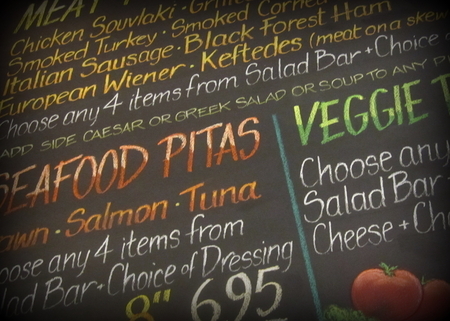 MEAT
Chicken Souvlaki · Grilled
Smoked Turkey · Smoked Corned
Italian Sausage · Black Forest Ham
European Wiener · Keftedes (meat on a skew
Choose any 4 items from Salad Bar + Choice o
ADD SIDE CAESAR OR GREEK SALAD OR SOUP TO ANY P
SEAFOOD PITAS
awn · Salmon · Tuna
oose any 4 items from
lad Bar + Choice of Dressing
8" 695
VEGGIE
Choose any
Salad Bar
Cheese + Ch